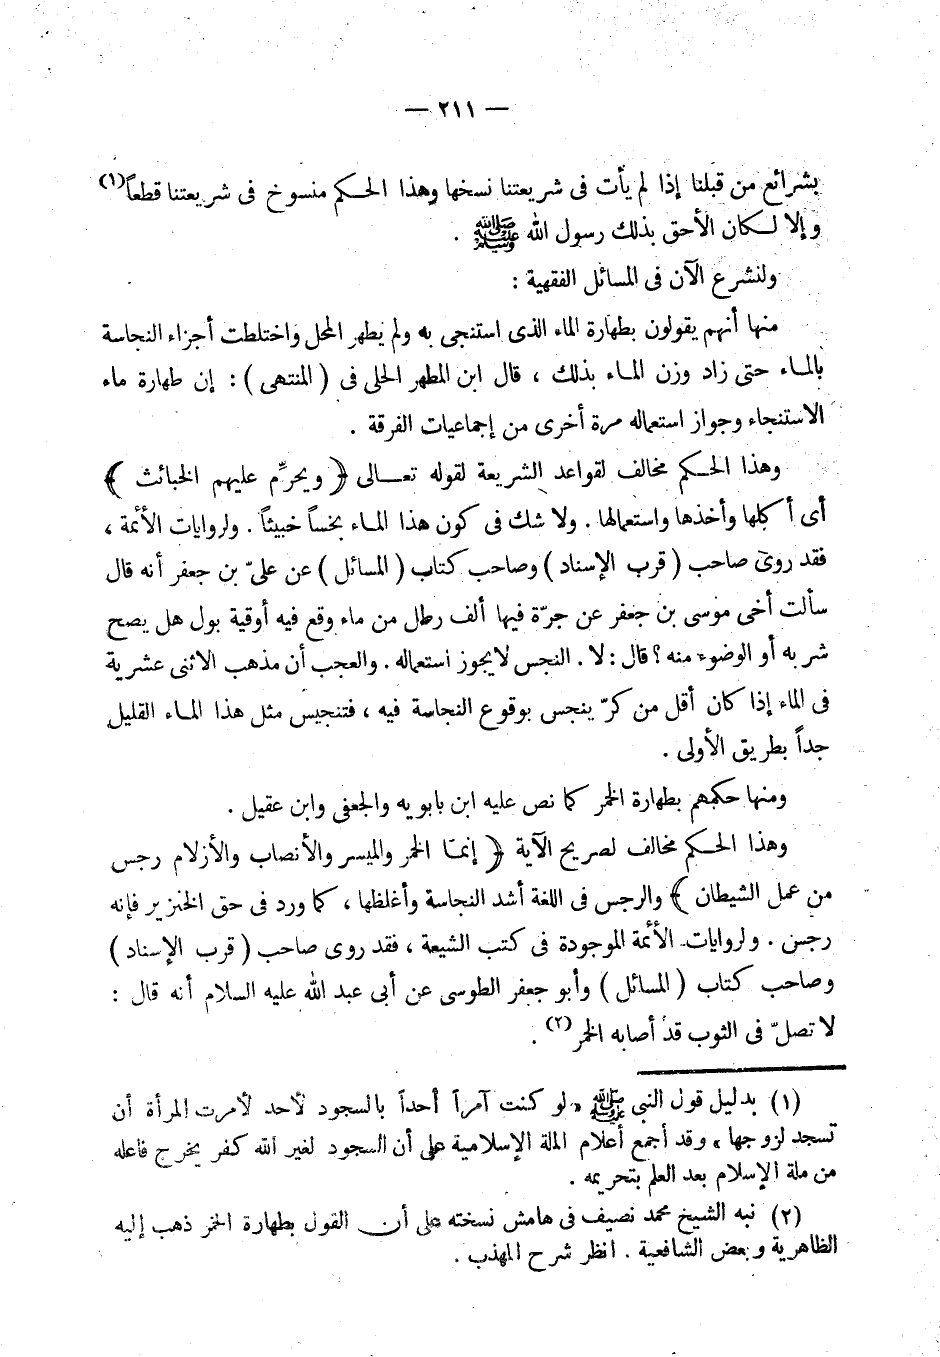 — ٢١١ —
بشرائع من قبلنا إذا لم يأت فى شريعتنا نسخها وهذا الحكم منسوخ فى شريعتنا قطعاً(١)
وإلا لكان الأحق بذلك رسول الله ﷺ .
ولنشرع الآن فى المسائل الفقهية :
منها أنهم يقولون بطهارة الماء الذى استنجى به ولم يطهر المحل واختلطت أجزاء النجاسة
بالماء حتى زاد وزن الماء بذلك ، قال ابن المطهر الحلى فى ( المنتهى ) : إن طهارة ماء
الاستنجاء وجواز استعماله مرة أخرى من إجماعيات الفرقة .
وهذا الحكم مخالف لقواعد الشريعة لقوله تعالى ﴿ ويحرِّم عليهم الخبائث ﴾
أى أكلها وأخذها واستعمالها . ولا شك فى كون هذا الماء نجساً خبيثاً . ولروايات الأئمة ،
فقد روى صاحب ( قرب الإسناد ) وصاحب كتاب ( المسائل ) عن علىّ بن جعفر أنه قال
سألت أخى موسى بن جعفر عن جرّة فيها ألف رطل من ماء وقع فيه أوقية بول هل يصح
شربه أو الوضوء منه ؟ قال : لا . النجس لا يجوز استعماله . والعجب أن مذهب الاثنى عشرية
فى الماء إذا كان أقل من كرّ ينجس بوقوع النجاسة فيه ، فتنجيس مثل هذا الماء القليل
جداً بطريق الأولى .
ومنها حكمهم بطهارة الخمر كما نص عليه ابن بابويه والجعفى وابن عقيل .
وهذا الحكم مخالف لصريح الآية ﴿ إنمّا الخمر والميسر والأنصاب والأزلام رجس
من عمل الشيطان ﴾ والرجس فى اللغة أشد النجاسة وأغلظها ، كما ورد فى حق الخنزير فإنه
رجس . ولروايات الأئمة الموجودة فى كتب الشيعة ، فقد روى صاحب ( قرب الإسناد )
وصاحب كتاب ( المسائل ) وأبو جعفر الطوسى عن أبى عبد الله عليه السلام أنه قال :
لا تصلّ فى الثوب قد أصابه الخمر(٢) .
(١) بدليل قول النبى ﷺ « لو كنت آمراً أحداً بالسجود لأحد لأمرت المرأة أن
تسجد لزوجها » وقد أجمع أعلام الملة الإسلامية على أن السجود لغير الله كفر يخرج فاعله
من ملة الإسلام بعد العلم بتحريمه .
(٢) نبه الشيخ محمد نصيف فى هامش نسخته على أن القول بطهارة الخمر ذهب إليه
الظاهرية وبعض الشافعية . انظر شرح المهذب .